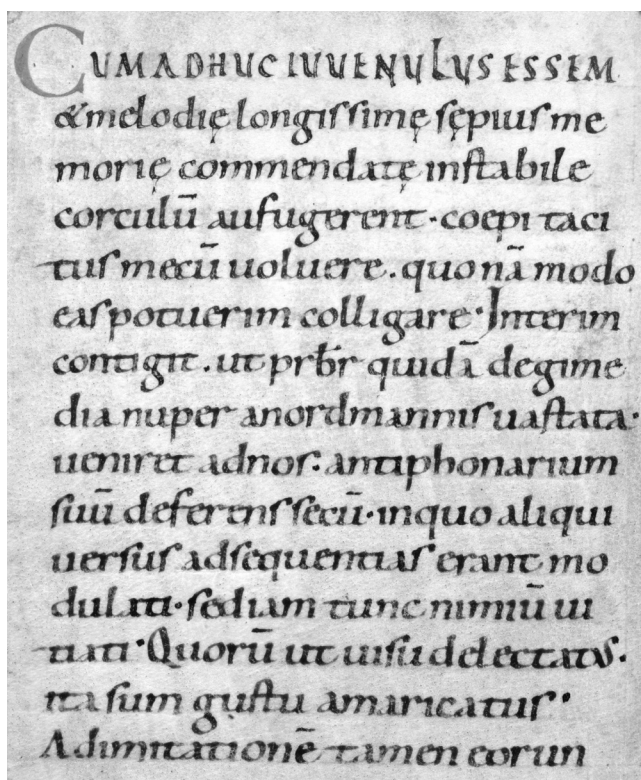 CUM ADHUC IUUENULUS ESSEM
& melodię longissimę sępius me
morię commendatę instabile
corculū aufugerent· coepi taci
tus mecū uoluere. quonā modo
eas potuerim colligare· Interim
contigit. ut prb̄r quidā degime
dia nuper anordmannis uastata·
ueniret adnos: antiphonarium
suū deferens secū· inquo aliqui
uersus adsequentias erant mo
dulati· sed iam tunc nimiū ui
tiati· Quorū ut uisu delectatus·
ita sum gustu amaricatus·
Ad imitationē tamen eorun